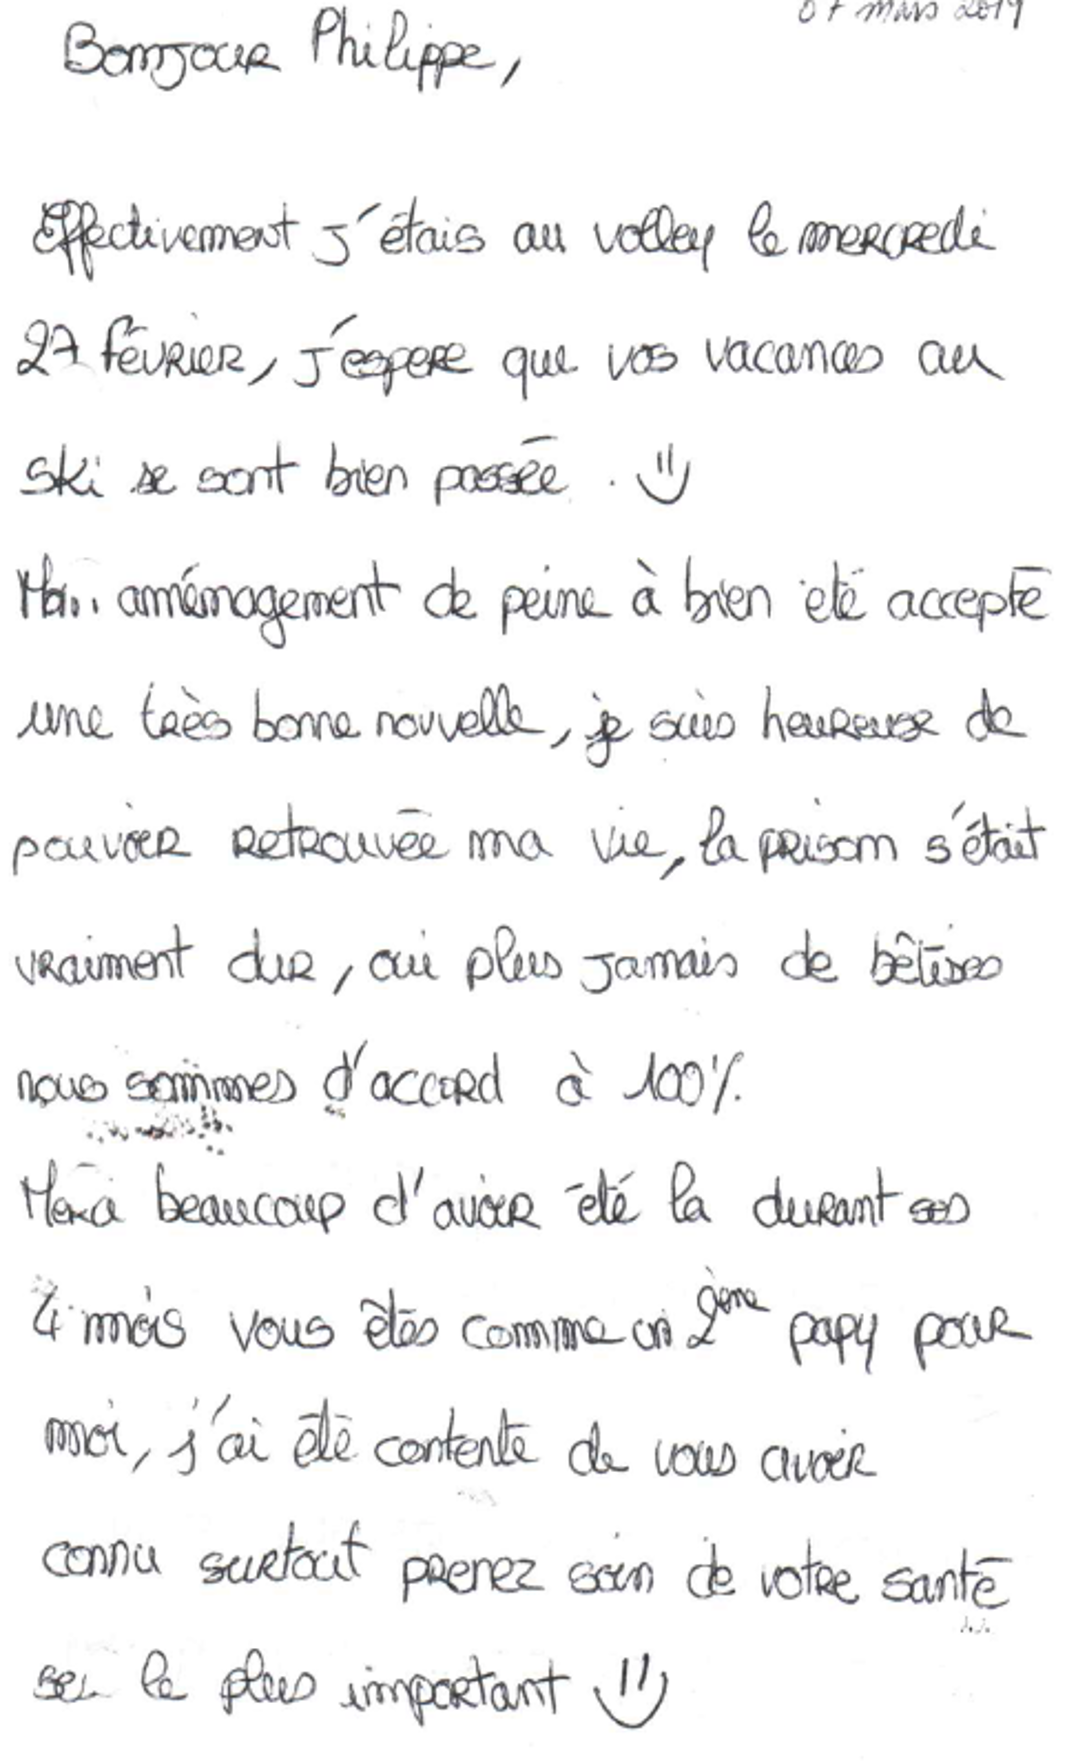 07 mars 2019
Bonjour Philippe,
Effectivement j'étais au volley le mercredi
27 février, j'espere que vos vacances au
ski se sont bien passée. :)
Mon aménagement de peine à bien été accepté
une très bonne nouvelle, je suis heureuse de
pouvoir retrouvée ma vie, la prison s'était
vraiment dur, oui plus jamais de bêtises
nous sommes d'accord à 100%.
Merci beaucoup d'avoir été la durant ses
4 mois vous êtes comme un 2ème papy pour
moi, j'ai été contente de vous avoir
connu surtout prenez soin de votre santé
le plus important :)